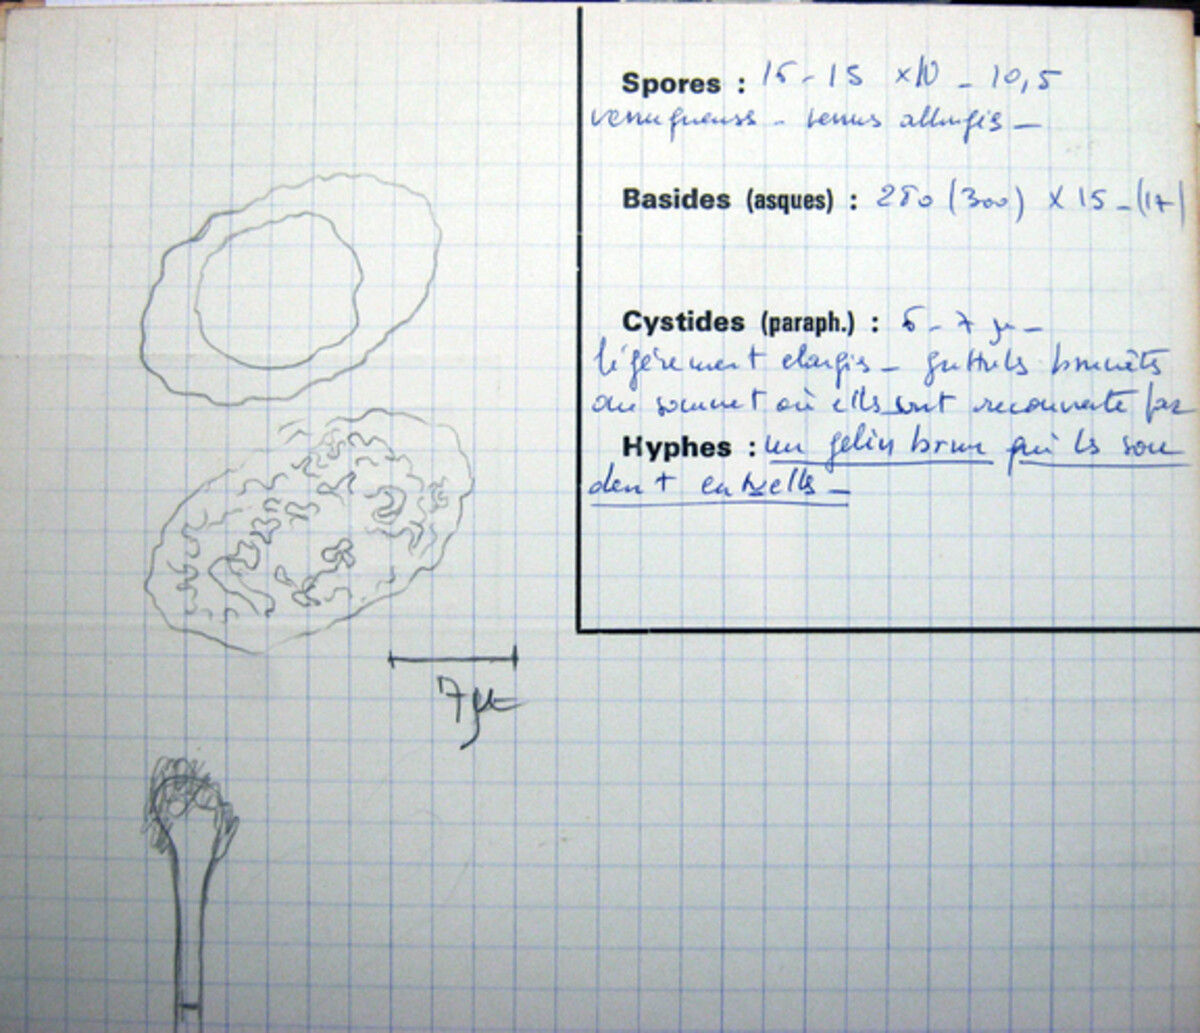 Spores : 15 - 15 x 10 - 10,5
verruqueuses -
Basides (asques) : 280 (300) x 15 - (17)
Cystides (paraph.) : 6 - 7 µ -
légèrement elargis - guttules brunâtes
au sommet où elles sont recouverte par
Hyphes : un gelin brun qui ls sou
dent entre elles -
7µ